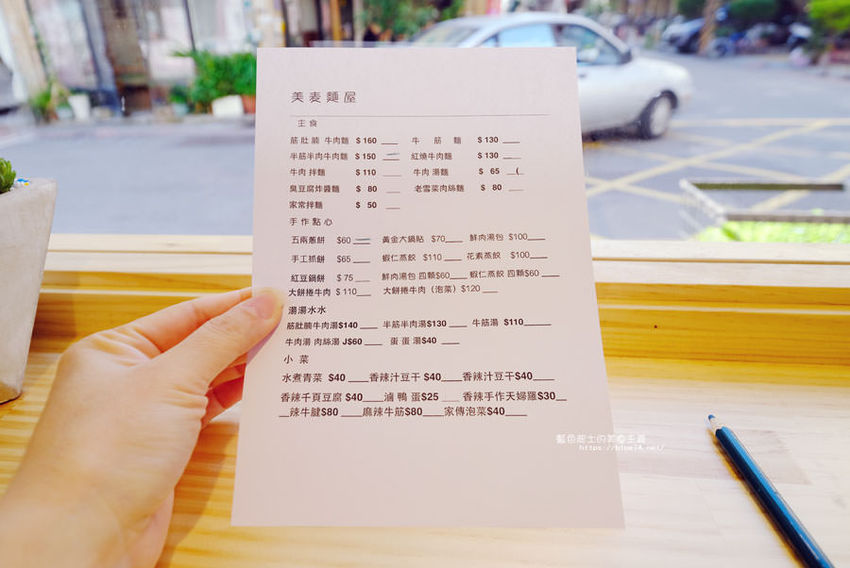 美麦麵屋
主食
筋肚腩 牛肉麵 $160 ___ 牛 筋 麵 $130 ___
半筋半肉牛肉麵 $150 ___ 紅燒牛肉麵 $130 ___
牛肉 拌麵 $110 ___ 牛肉 湯麵 $ 65 ___
臭豆腐炸醬麵 $ 80 ___ 老雪菜肉絲麵 $ 80 ___
家常拌麵 $ 50 ___
手作點心
五兩蔥餅 $60 ___ 黃金大鍋貼 $70___ 鮮肉湯包 $100___
手工抓餅 $65 ___ 蝦仁蒸餃 $110 ___ 花素蒸餃 $100___
紅豆鍋餅 $ 75 ___ 鮮肉湯包 四顆$60___ 蝦仁蒸餃 四顆$60 ___
大餅捲牛肉 $ 110___ 大餅捲牛肉（泡菜）$120 ___
湯湯水水
筋肚腩牛肉湯$140 ___ 半筋半肉湯$130 ___ 牛筋湯 $110___
牛肉湯 肉絲湯 J$60___ 蛋 蛋 湯$40 ___
小 菜
水煮青菜 $40 ___香辣汁豆干 $40___香辣汁豆干$40___
香辣千頁豆腐 $40___滷 鴨 蛋$25 ___ 香辣手作天婦羅$30__
__辣牛腱$80 ___麻辣牛筋$80___家傳泡菜$40___
藍色起士的美食主義